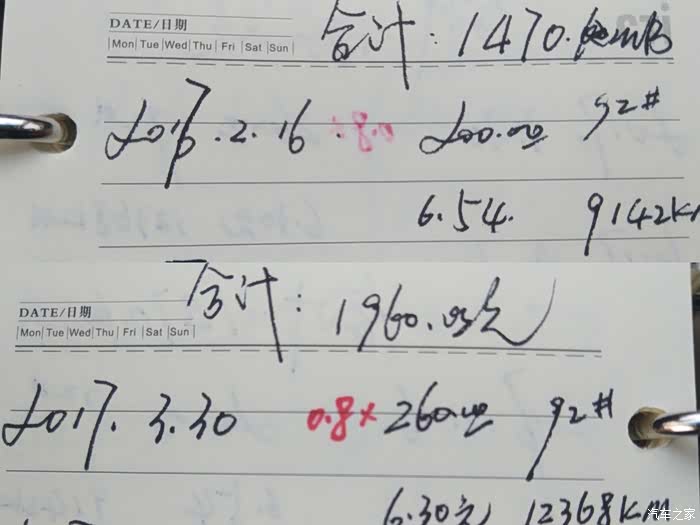 DATE/日期
合计: 1470.00RMB
Mon Tue Wed Thu Fri Sat Sun
2017.2.16 200.00 92#
6.54. 9142km
合计: 1960.05元
DATE/日期
Mon Tue Wed Thu Fri Sat Sun
2017.3.30 0.8× 260.00 92#
6.30元 12368km
汽车之家